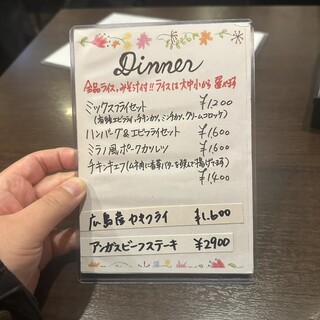 Dinner
全品ライス、みそ汁付!! ライスは大中小から選べます
ミックスフライセット ¥1,200
(有頭エビフライ、チキンカツ、ミンチカツ、クリームコロッケ)
ハンバーグ&エビフライセット ¥1,600
ミラノ風ポークカツレツ ¥1,600
チキンキエフ(ムネ肉に香草バターを包んで揚げてます)
¥1,400
広島産カキフライ ¥1,600
アンガスビーフステーキ ¥2900